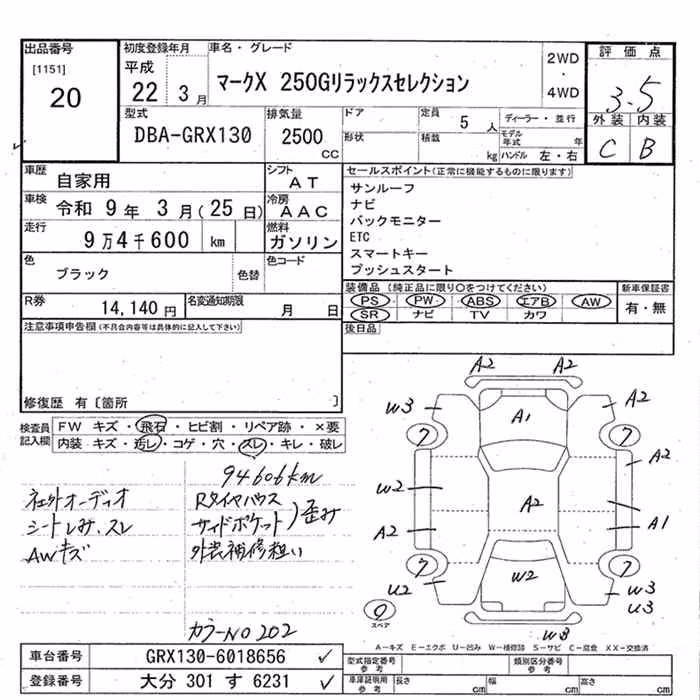 出品番号 初度登録年月 車名・グレード 2WD・4WD 評価点
[1151]
20
平成 22 3月
マークX 250Gリラックスセレクション
3.5
外装 内装
C B
型式 排気量 ドア 定員 5人 ディーラー・並行
DBA-GRX130 2500cc 形状 積載 kg モデル年式 年
ハンドル 左・右
車歴 自家用 シフト AT
車検 令和 9年 3月(25日) 冷房 AAC
走行 9万4千600 km 燃料 ガソリン
色 ブラック 色替 色コード
R券 14,140円 名変通知期限 月 日
セールスポイント(正常に機能するものに限ります)
サンルーフ
ナビ
バックモニター
ETC
スマートキー
プッシュスタート
装備品(純正品に限り○をつけてください) 新車保証書
PS・PW・ABS・エアB・AW 有・無
SR ナビ TV カワ
後日品
注意事項申告欄(不具合内容等は具体的に記入して下さい)
修復歴 有〔箇所 〕
検査員記入欄
FW キズ・飛石・ヒビ割・リペア跡・×要
内装 キズ・汚レ・コゲ・穴・スレ・キレ・破レ
94606km
社外オーディオ Rタイヤハウス
シートしみ、スレ サイドポケット)歪み
AWキズ 外装補修粗い
カラーNO 202
A2 A2
W3 A1 A2
7 7
W2 A2 A2
A2 A1
7 7
U2 W2 W3
U3
0 スペア
W3
A-キズ E-エクボ U-凹み W-補修跡 S-サビ C-腐食 XX-交換済
車台番号 GRX130-6018656 ✓
登録番号 大分 301 す 6231 ✓
型式指定番号 参考 類別区分番号 参考
車庫証明用 参考 長さ cm 幅 cm 高さ cm